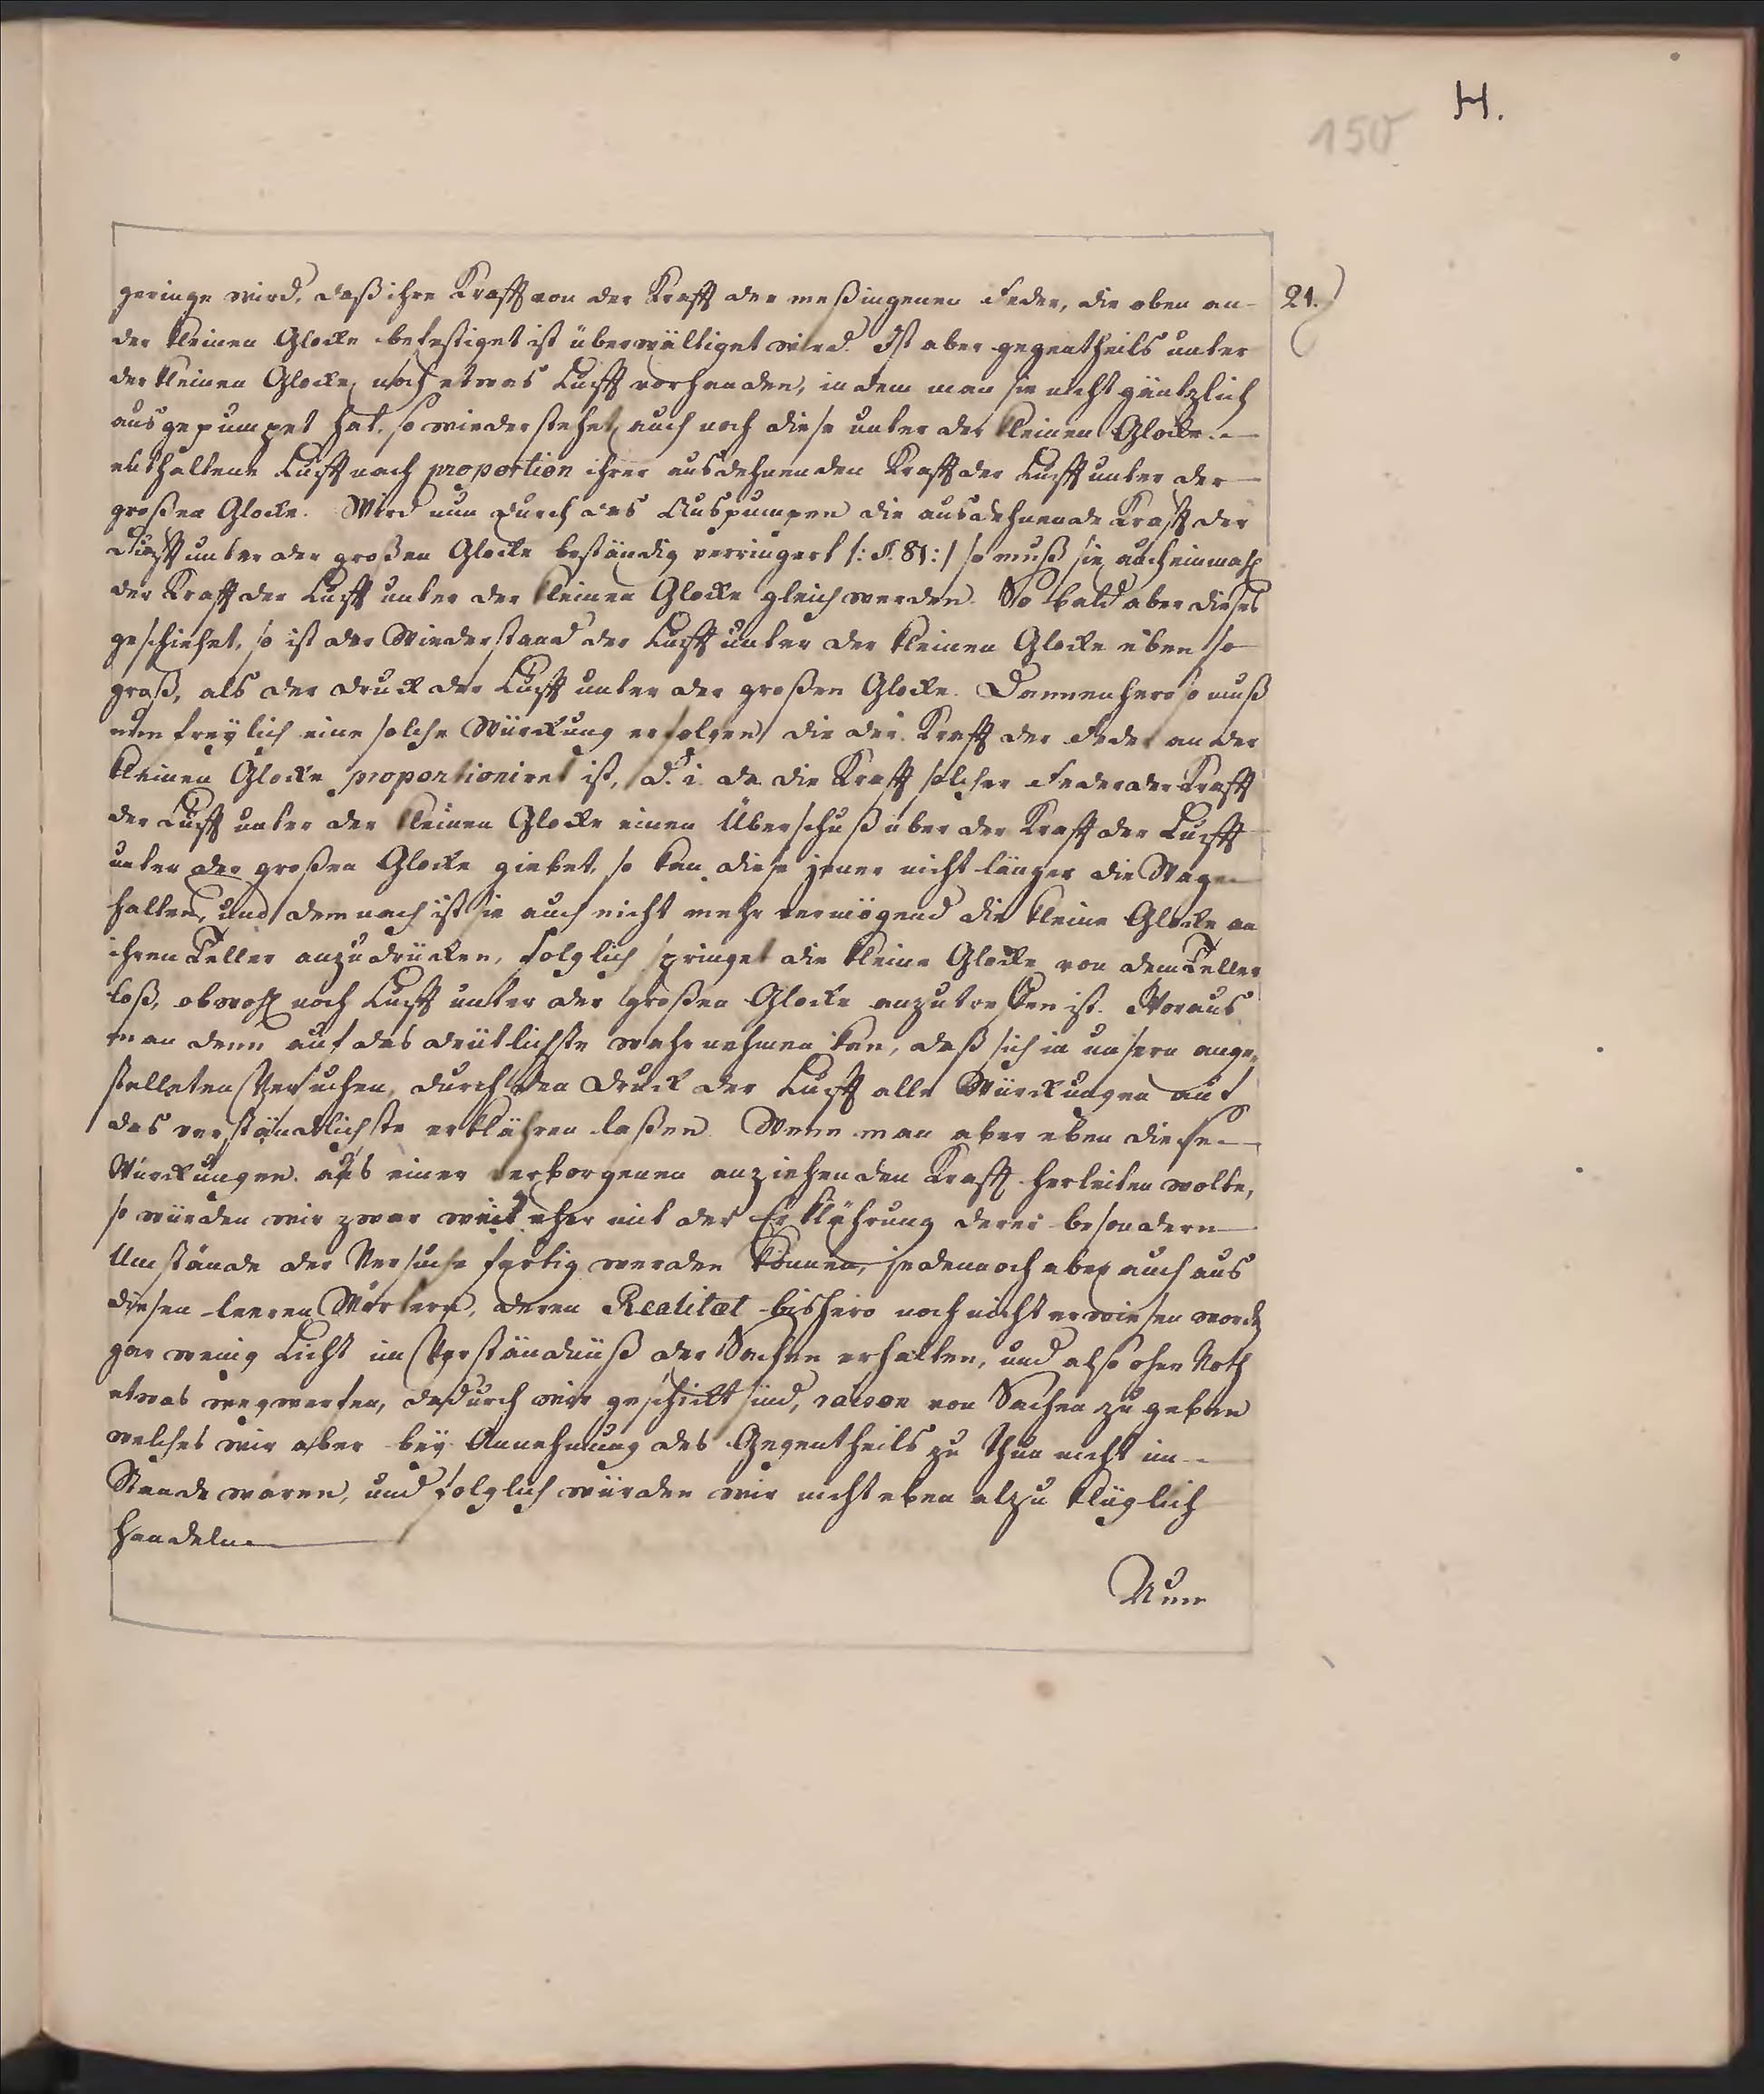 H.
150
21.
geringe wird, daß ihre Krafft von der Krafft der meßingenen Feder, die oben an
der kleinen Glocke befestiget ist überwältiget wird. Ist aber gegentheils unter
der kleinen Glocke noch etwas Lufft vorhanden, in dem man sie nicht gäntzlich
ausgepumpet hat, so wiederstehet auch noch diese unter der kleinen Glocke
enthaltene Lufft nach proportion ihrer ausdehnenden Krafft der Lufft unter der
großen Glocke. Wird nun durch das Auspumpen die ausdehnende Krafft der
Lufft unter der großen Glocke beständig verringert /: §. 81 :/ so muß sie auch einmahl
der Krafft der Lufft unter der kleinen Glocke gleich werden. So bald aber dieses
geschiehet, so ist der Wiederstand der Lufft unter der kleinen Glocke eben so
groß, als der Druck der Lufft unter der großen Glocke. Dannenhero so muß
nun freylich eine solche Würckung erfolgen, die der Krafft der Feder an der
kleinen Glocke proportioniret ist, d. i. da die Krafft solcher Feder der Krafft
der Lufft unter der kleinen Glocke einen Überschuß über der Krafft der Lufft
unter der großen Glocke giebet, so kan diese jener nicht länger die Wage
halten, und dem nach ist sie auch nicht mehr vermögend die kleine Glocke an
ihren Teller anzudrücken, folglich springet die kleine Glocke von dem Teller
loß, obwohl noch Lufft unter der großen Glocke anzutreffen ist. Woraus
man denn auf das deutlichste wahrnehmen kan, daß sich in unsern ange-
stelleten Versuchen, durch den Druck der Lufft alle Würckungen auf
das verständlichste erklähren laßen. Wenn man aber eben diese
Würckungen aus einer verborgenen anziehenden Krafft herleiten wolte,
so würden wir zwar weit eher mit der Erklährung derer besondern
Umstände der Versuche fertig werden können, jedennoch aber auch aus
diesen leeren Wörtern, deren Realitæt bishero noch nicht erwiesen word
gar wenig Licht im Verständnüß der Sachen erhalten, und also ohne Noth
etwas wegwerfen, dadurch wir geschickt sind, raison von Sachen zu geben
welches wir aber bey Annehmung des Gegentheils zu thun nicht im
Stande wären, und folglich würden wir nicht eben alzu klüglich
handeln.
Nun